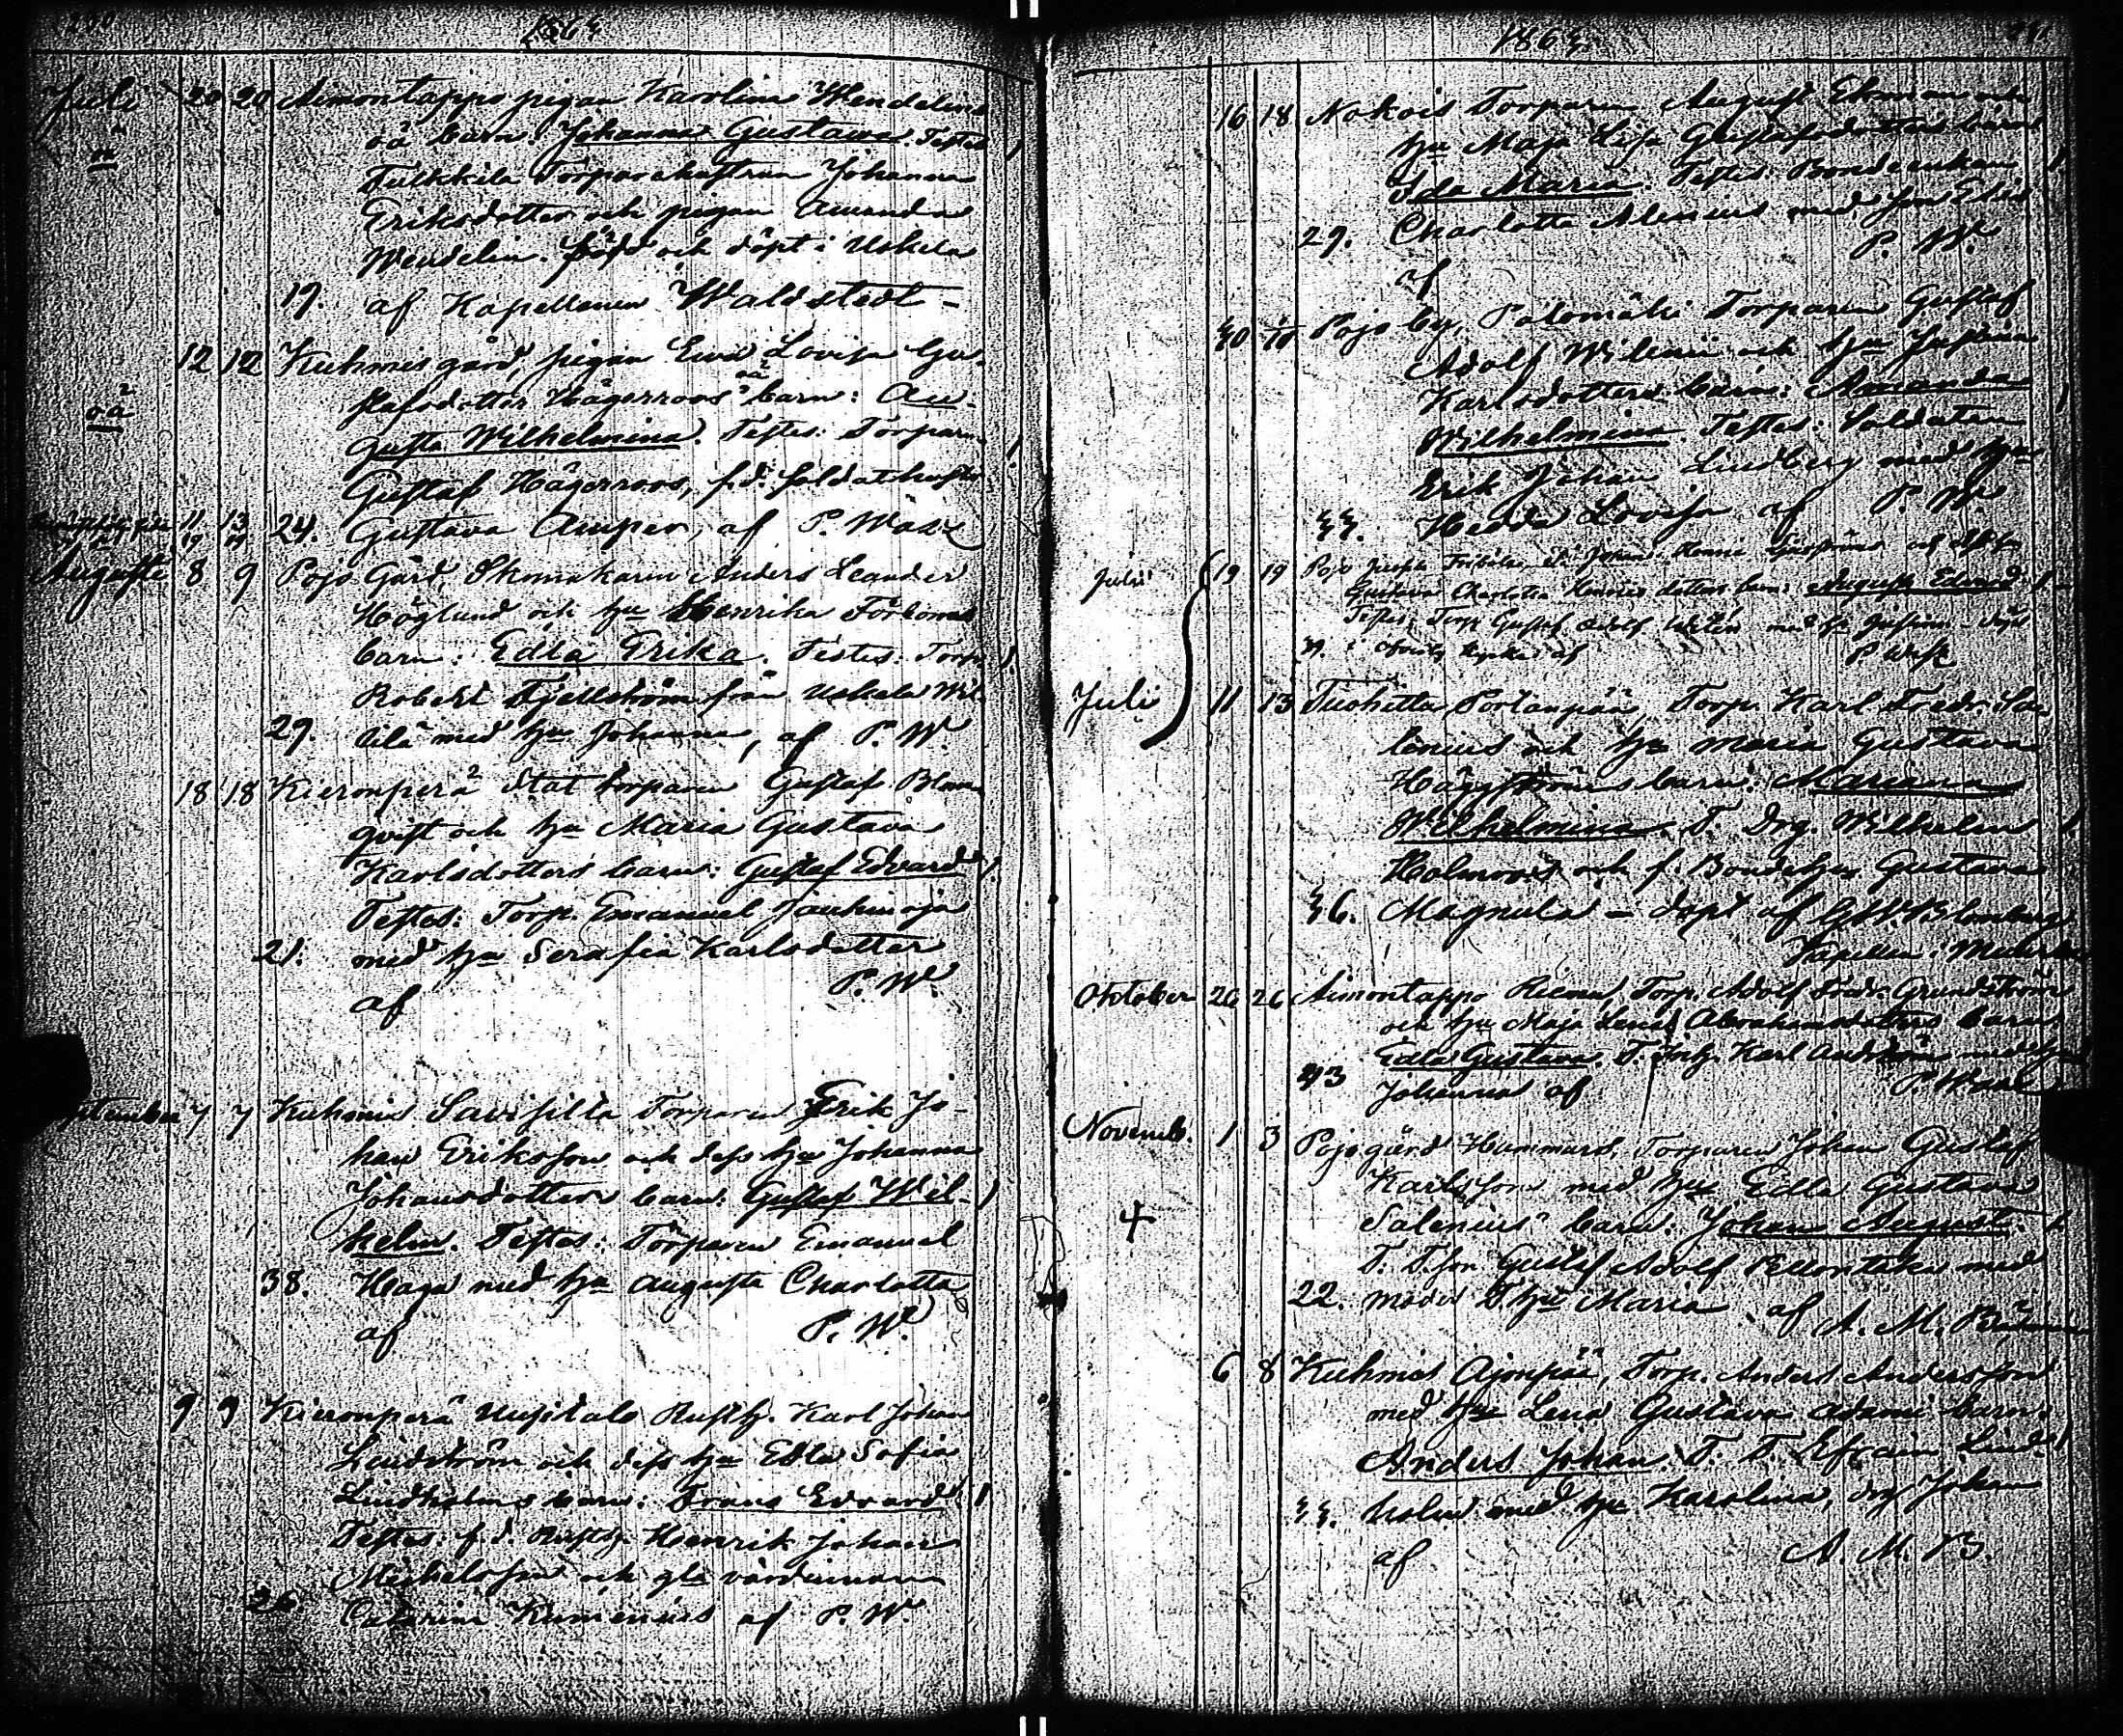 Juli 20 20 Aimontappo pigan Karolina Wendelins
oä barn: Johanna Gustava. Testes
Torparehustrun Johanna
Eriksdotter och pigan Amanda
Wendelin. född och döpt i Uskela
19. af Kapellanen Waldstedt -
12 12 Kuhmis gård, pigan Ewa Lovisa Gu-
oä stafsdotter Hägerroos oä barn: Au-
gusta Wilhelmina. Testes: Torparen
Gustaf Hägerroos, f.d. soldatenhustru
11 13 24. Gustava Amper, af P. Wase
Augusti 8 9 Pojo Gård, Skomakaren Anders Leander
Höglund och hu Henrika Förboms
barn: Edla Erika. Testes: Torp.
Robert Fjellström från Uskela Wil-
29. lilä med hu Johanna, af P. W.
18 18 Kieronperä Stattorparen Gustaf Blom-
qvist och hu Maria Gustava
Karlsdotters barn: Gustaf Edvard
Testes: Torp. Emanuel
21. med hu Serafia Karlsdotter
af P. W.
September 7 7 Kuhmis Savisilta Torparen Erik Jo-
han Eriksson och dess hu Johanna
Johansdotters barn: Gustaf Wil-
helm. Testes: Torparen Emanuel
38. Haga med hu Augusta Charlotta
af P. W.
9 9 Kieronperä Uusitalo Rusth. Karl Johan
Lindström och dess hu Edla Sofia
Lindholms barn: Frans Edvard
Testes: f.d. Rusth. Henrik Johan
Michelsson och gla värdinnan
36. Catarina Kumenius af P. W.
16 18 Nokois Torparen August Ekman och
hu Maja Lisa Gustafsdotters barn
Ida Maria. Testes: Bondeenkan
29. Charlotta Alenius med son Elis
af P. W.
Pojo by, Palomäki Torparen Gustaf
Adolf Wilenii och hu Justina
Karlsdotters barn: Amanda
Wilhelmina. Testes: Soldaten
Erik Johan Lindberg med hu
Hedda Lovisa af P. W.
Julii 19 19 Pojo
Gustava Charlotta Henriksdotters barn: August Edvard
Testes: Torp Gustaf Adolf Wilén med hu Justina - döpt
i kyrka af P Wase
Juli 11 13 Tuohitta Portaanpää, Torp. Karl Fredr. Sa-
lenius och hu Maria Gustava
Häggströms barn: Mariana
Wilhelmina. T. Drg. Wilhelm
Holmroos och f. Bondehu Gustava
36. Magnula - döpt af G.W. Blomberg
Kapellan i
Oktober 26 26 Aimontappo Torp. Adolf Fredr. Grundström
och hu Maja Lena Abrahamsdotters barn
Edla Gustava. T. Karl Andström med hu
43 Johanna af P Wase
Novemb. 1 3 Pojo gård Hammars, Torparen Johan Gustaf
Karlsson med hu Edla Gustava
Salenius barn: Johan August.
T. T.son Gustaf Adolf med
22. moder T hu Maria af A. M.
6 8 Kuhmis Ajonpää, Torp. Anders Andersson
med hu Lena Gustava Adami barn:
Anders Johan. T. T. Efraim Lind-
holm med hu Karolina, drg Johan
af A. M. B.